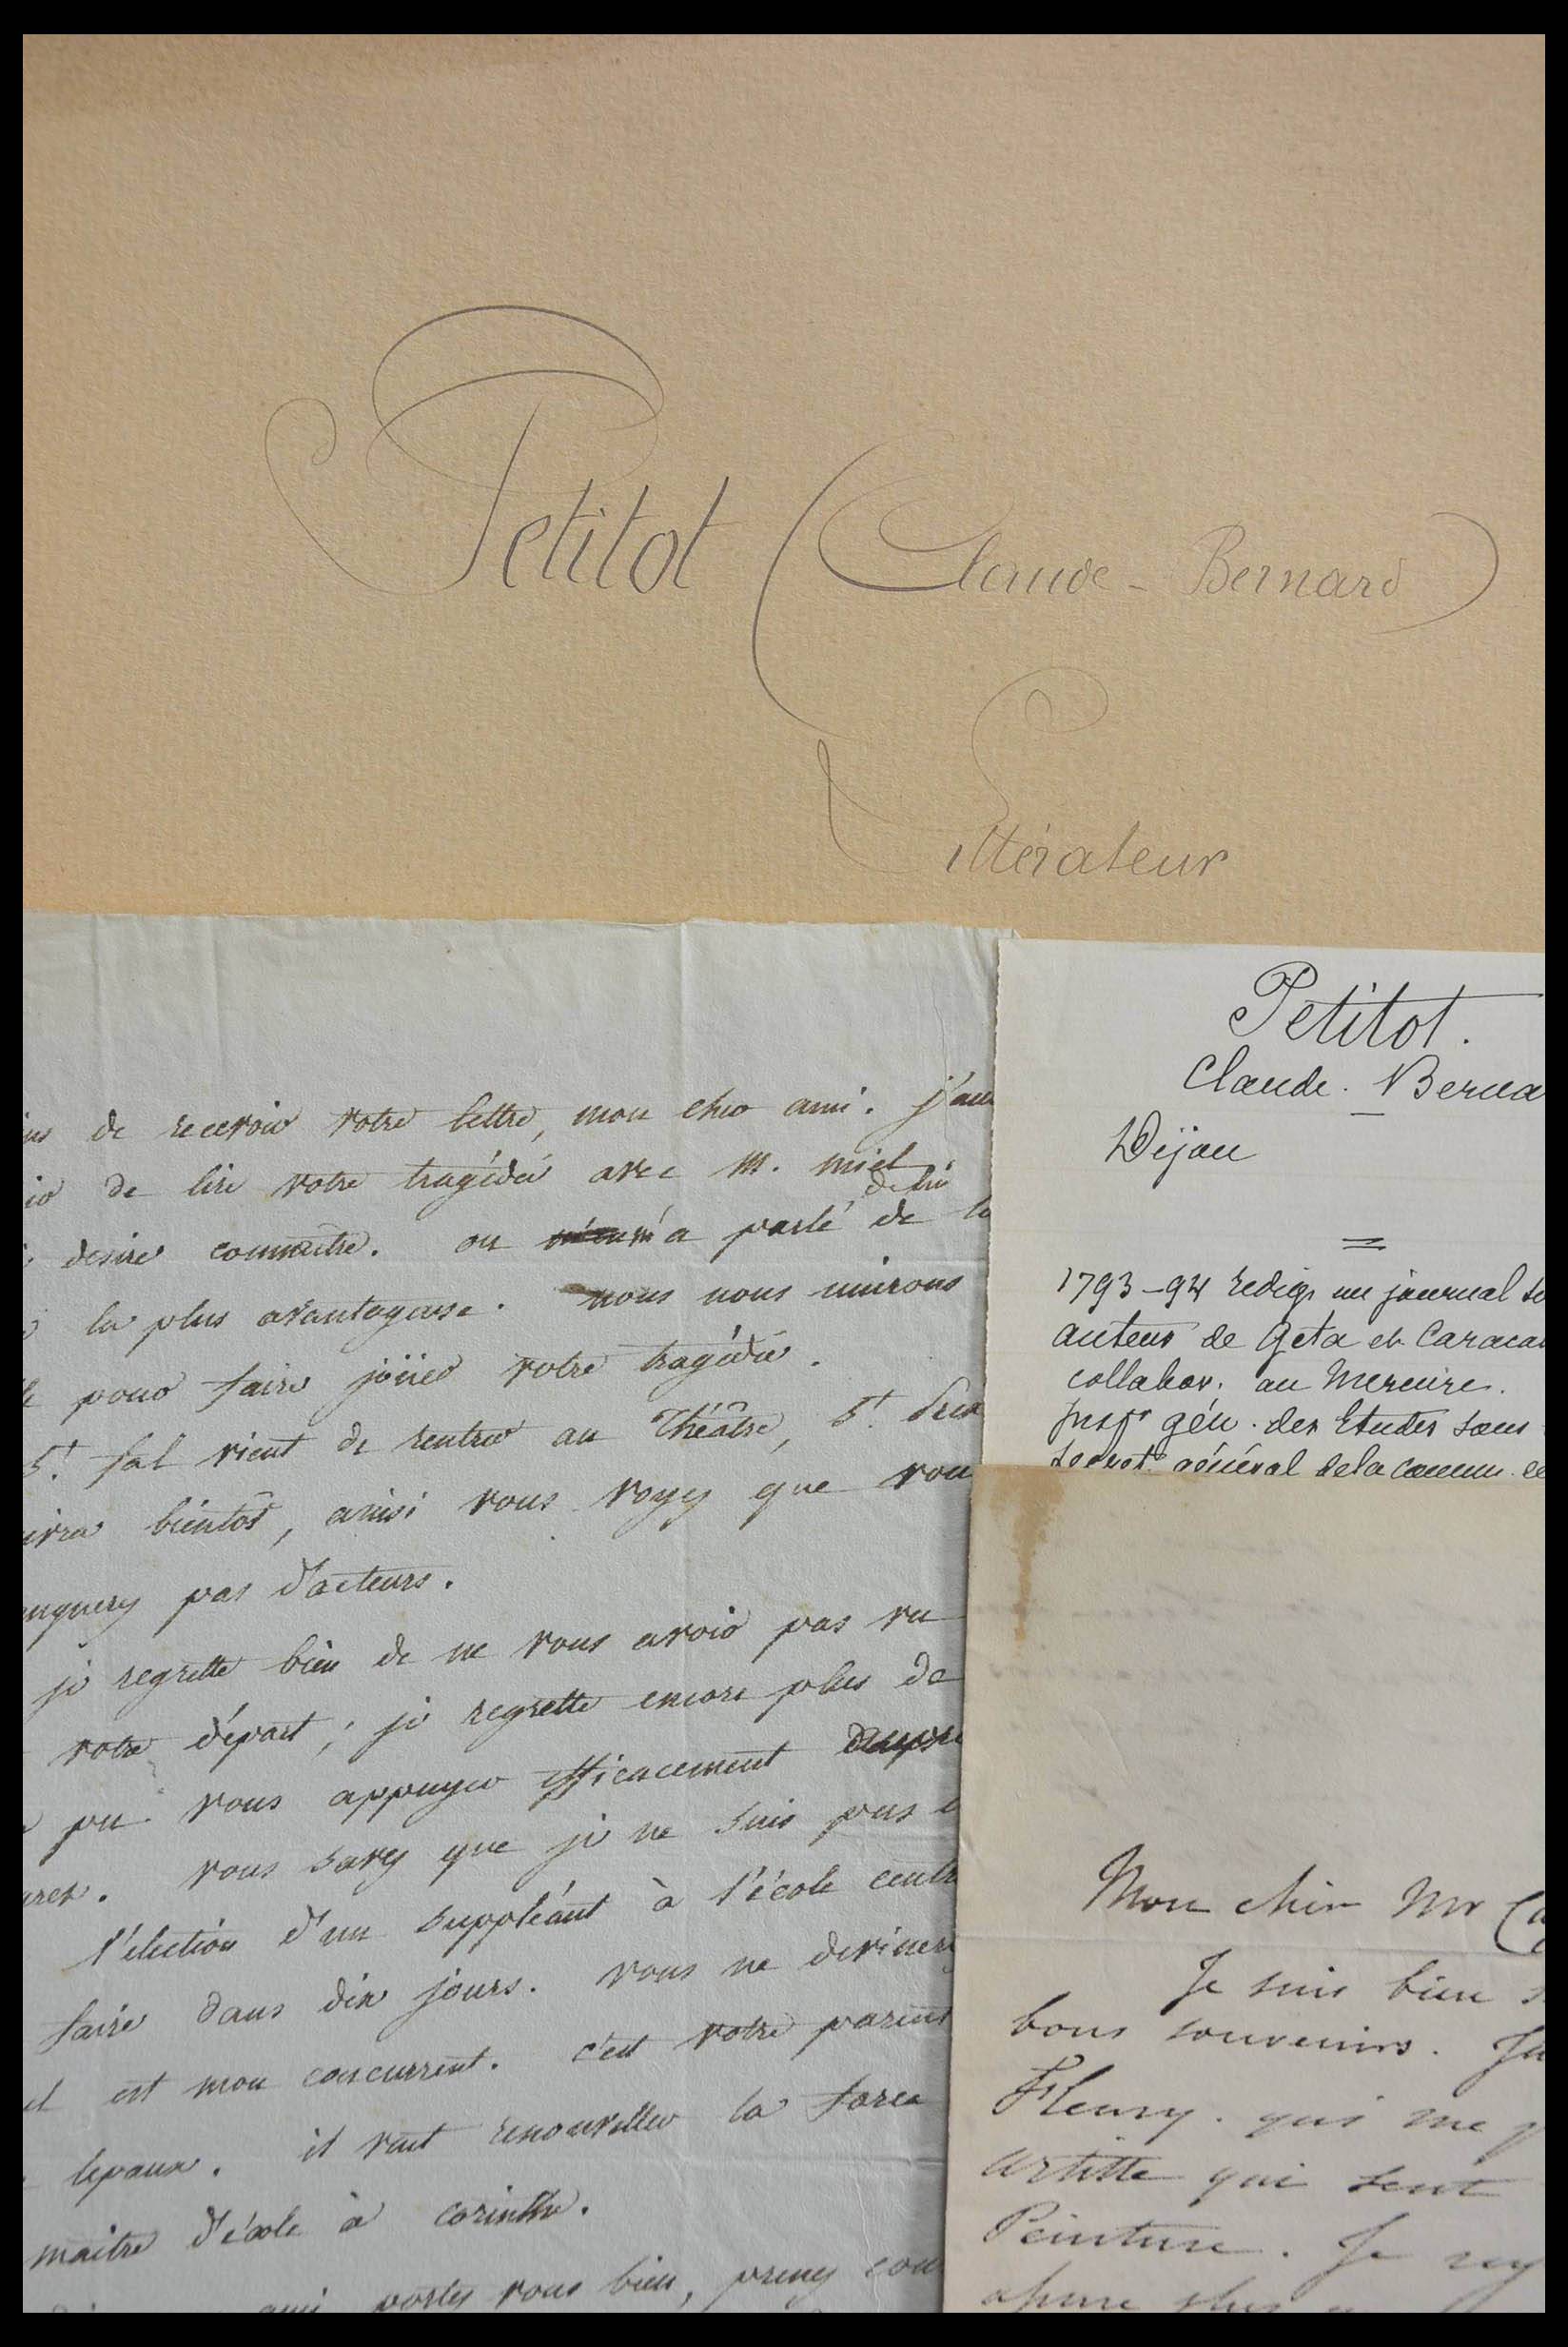 Petitot (Claude-Bernard)
Littérateur
de recevoir votre lettre, mon cher ami. j'au
de lire votre tragédie avec M. miel
de lui
desire connoitre. on m'a parlé de la
la plus avantageuse. nous nous unirons
pour faire jöuer votre tragédie.
St. fal vient de rentrer au Théâtre, St.
bientôt, ainsi vous voyez que vou
pas d'acteurs.
je regrette bien de ne vous avoir pas vu
votre départ; je regrette encore plus de
pu vous appuyer efficacement
vous savez que je ne suis pas
l'election d'un suppléant à l'école centr
faire dans dix jours. vous ne devinerez
est mon concurrent. c'est votre parent
lepaux. il veut renouveller la farce
maitre d'école à corinthe.
ami portez vous bien, prenez
Petitot.
Claude. Berna
Dijon
=
1793-94 redige un journal
auteur de Geta et Caraca
collabor. au Mercure.
Inspr gén. des Etudes sous
secret. général de la comm.
Mon cher Mr Ca
Je suis bien
bons souvenirs. Ju
Fleury. qui me
artiste qui sent
Peinture. Je